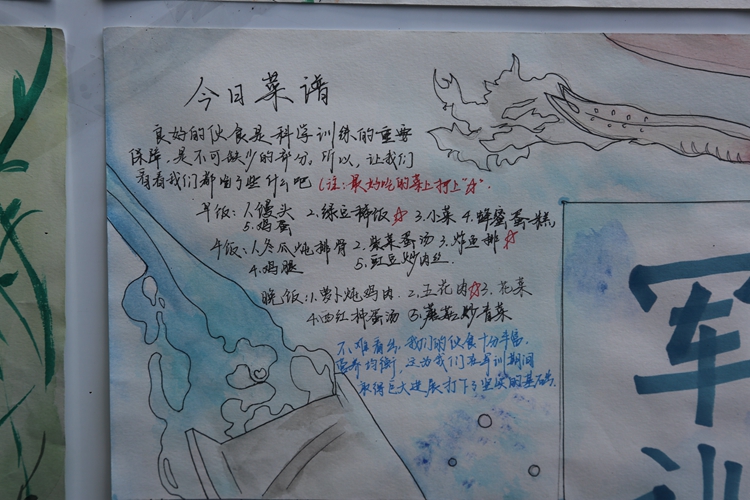 今日菜谱
良好的伙食是科学训练的重要
保障,是不可缺少的部分。所以,让我们
看看我们都吃了些什么吧(注:最好吃的菜上打上"☆".
早饭:1.馒头 2.绿豆稀饭☆ 3.小菜 4.蜂蜜蛋糕
5.鸡蛋
午饭:1.冬瓜炖排骨 2.紫菜蛋汤 3.炸鱼排☆
4.鸡腿 5.豇豆炒肉丝.
晚饭:1.萝卜炖鸡肉 2.五花肉☆3.花菜
4.西红柿蛋汤 5.蘑菇炒青菜
不难看出,我们的伙食十分丰富,
营养均衡,这为我们在军训期间
取得巨大进展打下了坚实的基础.
军
训